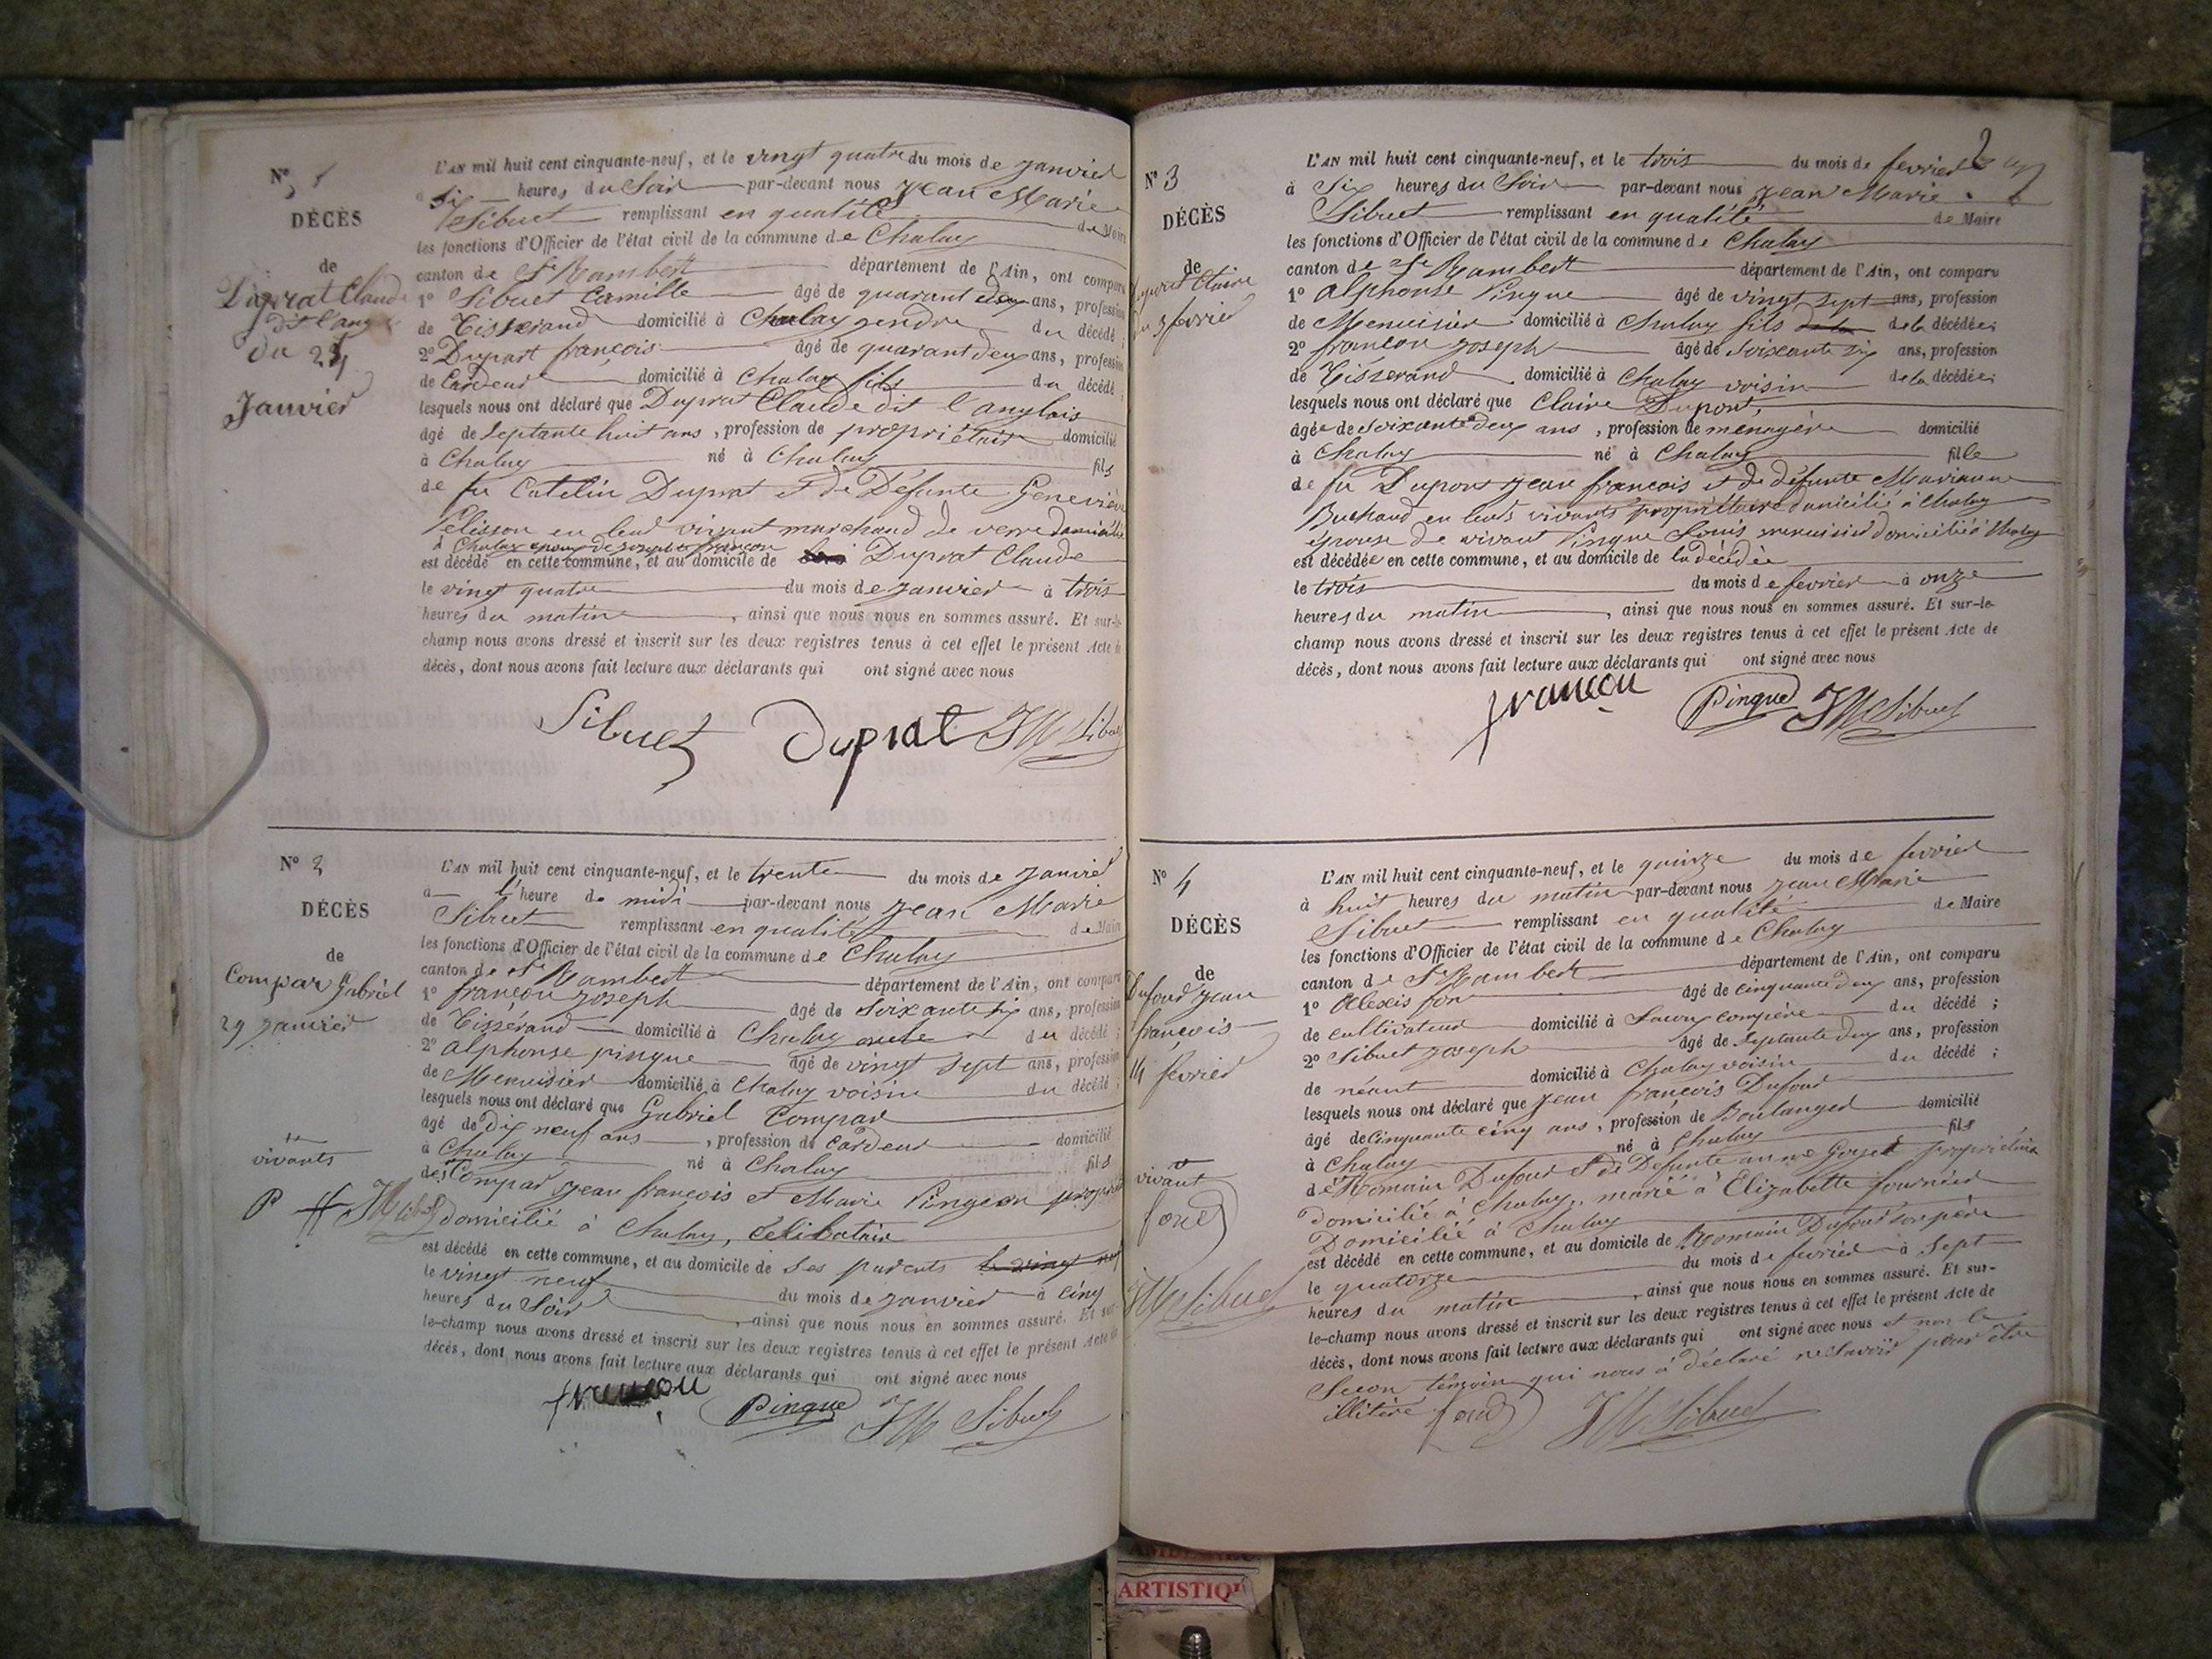 N° 1
DÉCÈS
de
Duprat Claude
dit l'ang
du 24
Janvier
L'AN mil huit cent cinquante-neuf, et le vingt quatre du mois de Janvier
à six heures du Soir par-devant nous Jean Marie
Sibuet remplissant en qualité de Maire
les fonctions d'Officier de l'état civil de la commune de Chaley
canton de St Rambert département de l'Ain, ont comparu
1° Sibuet Camille âgé de quarant deux ans, profession
de Tisserand domicilié à Chaley gendre du décédé ;
2° Duprat françois âgé de quarant deux ans, profession
de Cardeur domicilié à Chaley fils du décédé ;
lesquels nous ont déclaré que Duprat Claude dit l'anglais
âgé de Septante huit ans, profession de propriétaire domicilié
à Chaley né à Chaley fils
de fu Catelin Duprat et de Défunte Geneviève
Pélisson en leur vivant marchand de verre domicilié
à Chaley époux de Josephte francon
est décédé en cette commune, et au domicile de Duprat Claude
le vingt quatre du mois de Janvier à trois
heures du matin, ainsi que nous nous en sommes assuré. Et sur-le-
champ nous avons dressé et inscrit sur les deux registres tenus à cet effet le présent Acte de
décès, dont nous avons fait lecture aux déclarants qui ont signé avec nous
Sibuet Duprat JM Sibuet
N° 2
DÉCÈS
de
Compar Gabriel
29 Janvier
vivants
P JM Sibuet
L'AN mil huit cent cinquante-neuf, et le trente du mois de Janvier
à l'heure de midi par-devant nous Jean Marie
Sibuet remplissant en qualité de Maire
les fonctions d'Officier de l'état civil de la commune de Chaley
canton de St Rambert département de l'Ain, ont comparu
1° francon Joseph âgé de Soixante dix ans, profession
de Tissérand domicilié à Chaley oncle du décédé ;
2° alphonse pingue âgé de vingt sept ans, profession
de Menuisier domicilié à Chaley voisin du décédé ;
lesquels nous ont déclaré que Gabriel Compar
âgé de Dix neuf ans, profession de Cardeur domicilié
à Chaley né à Chaley fils
des Compar Jean francois et Marie Pingeon propriet
domicilié à Chaley, Célibataire
est décédé en cette commune, et au domicile de ses parents le vingt neuf
le vingt neuf du mois de Janvier à cinq
heures du Soir, ainsi que nous nous en sommes assuré. Et sur-
le-champ nous avons dressé et inscrit sur les deux registres tenus à cet effet le présent Acte de
décès, dont nous avons fait lecture aux déclarants qui ont signé avec nous
francon Pingue JM Sibuet
2
N° 3
DÉCÈS
de
Dupont Claire
du 3 fevrier
L'AN mil huit cent cinquante-neuf, et le trois du mois de fevrier
à Six heures du Soir par-devant nous Jean Marie
Sibuet remplissant en qualité de Maire
les fonctions d'Officier de l'état civil de la commune de Chaley
canton de St Rambert département de l'Ain, ont comparu
1° alphonse Pingue âgé de vingt sept ans, profession
de Menuisier domicilié à Chaley fils de la décédée ;
2° francon Joseph âgé de Soixante dix ans, profession
de Tisserand domicilié à Chaley voisin de la décédée ;
lesquels nous ont déclaré que Claire Dupont,
âgée de Soixante deux ans, profession de menagère domicilié
à Chaley né à Chaley fille
de fu Dupont Jean francois et de défunte Marianne
Buchaud en leurs vivants propriétaire domicilié à Chaley
épouse de vivant Pingue Louis menuisier domicilié à Chaley
est décédée en cette commune, et au domicile de la décédée
le trois du mois de fevrier à onze
heures du matin, ainsi que nous nous en sommes assuré. Et sur-le-
champ nous avons dressé et inscrit sur les deux registres tenus à cet effet le présent Acte de
décès, dont nous avons fait lecture aux déclarants qui ont signé avec nous
francon Pingue JM Sibuet
N° 4
DÉCÈS
de
Dufour Jean
françois
14 fevrier
vivant
JM Sibuet
L'AN mil huit cent cinquante-neuf, et le quinze du mois de fevrier
à huit heures du matin par-devant nous Jean Marie
Sibuet remplissant en qualité de Maire
les fonctions d'Officier de l'état civil de la commune de Chaley
canton de St Rambert département de l'Ain, ont comparu
1° Alexis âgé de cinquante deux ans, profession
de cultivateur domicilié à compère du décédé ;
2° Sibuet Joseph âgé de Septante deux ans, profession
de néant domicilié à Chaley voisin du décédé ;
lesquels nous ont déclaré que Jean francois Dufour
âgé de cinquante cinq ans, profession de Boulanger domicilié
à Chaley né à Chaley fils
de Romain Dufour et de Défunte anne propriétaire
domicilié à Chaley, marié à Elizabette fournier
Domicilié à Chaley
est décédé en cette commune, et au domicile de Romain Dufour son père
le quatorze du mois de fevrier à Sept
heures du matin, ainsi que nous nous en sommes assuré. Et sur-
le-champ nous avons dressé et inscrit sur les deux registres tenus à cet effet le présent Acte de
décès, dont nous avons fait lecture aux déclarants qui ont signé avec nous et non le
Secon témoin qui nous a déclaré ne Savoir pour être
illitéré JM Sibuet
ARTISTIQ